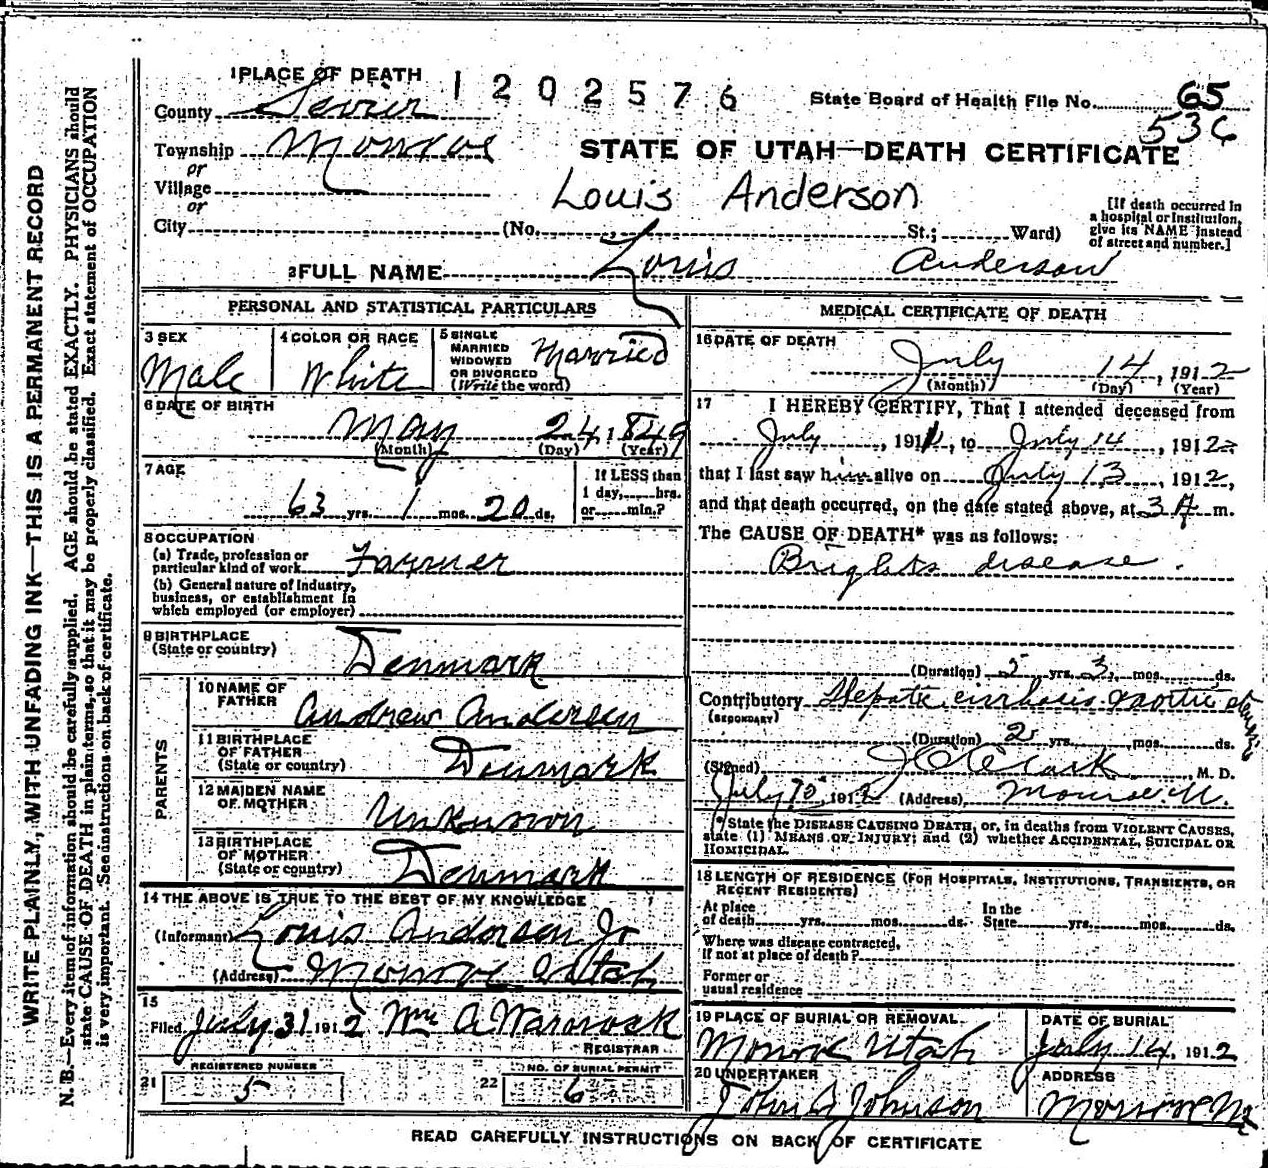 1 PLACE OF DEATH
1202576
State Board of Health File No. 65
536
County Sevier
Township Monroe
or
Village
or
City (No. St.; Ward)
STATE OF UTAH—DEATH CERTIFICATE
Louis Anderson
[If death occurred in
a hospital or institution,
give its NAME instead
of street and number.]
2 FULL NAME Louis Anderson
PERSONAL AND STATISTICAL PARTICULARS
3 SEX
Male
4 COLOR OR RACE
White
5 SINGLE
MARRIED
WIDOWED
OR DIVORCED
(Write the word)
Married
6 DATE OF BIRTH
May 24, 1849
(Month) (Day) (Year)
7 AGE
63 yrs. 1 mos. 20 ds.
If LESS than
1 day, hrs.
or min.?
8 OCCUPATION
(a) Trade, profession or
particular kind of work Farmer
(b) General nature of Industry,
business, or establishment in
which employed (or employer)
9 BIRTHPLACE
(State or country)
Denmark
PARENTS
10 NAME OF
FATHER
Andrew Andersen
11 BIRTHPLACE
OF FATHER
(State or country)
Denmark
12 MAIDEN NAME
OF MOTHER
Unknown
13 BIRTHPLACE
OF MOTHER
(State or country)
Denmark
14 THE ABOVE IS TRUE TO THE BEST OF MY KNOWLEDGE
(Informant) Louis Andersen Jr
(Address) Monroe Utah
15
Filed July 31 1912 Wm A Warnock
REGISTRAR
REGISTERED NUMBER
21 5
NO. OF BURIAL PERMIT
22 6
MEDICAL CERTIFICATE OF DEATH
16 DATE OF DEATH
July 14, 1912
(Month) (Day) (Year)
17 I HEREBY CERTIFY, That I attended deceased from
July, 1911, to July 14, 1912
that I last saw him alive on July 13, 1912,
and that death occurred, on the date stated above, at 3 A m.
The CAUSE OF DEATH* was as follows:
Brights disease.
(Duration) yrs. 3 mos. ds.
Contributory Hepatic cirrhosis
(SECONDARY)
(Duration) 2 yrs. mos. ds.
(Signed) J C Clark, M. D.
July 15, 1912 (Address) Monroe U.
* State the DISEASE CAUSING DEATH, or, in deaths from VIOLENT CAUSES,
state (1) MEANS OF INJURY; and (2) whether ACCIDENTAL, SUICIDAL OR
HOMICIDAL.
18 LENGTH OF RESIDENCE (FOR HOSPITALS, INSTITUTIONS, TRANSIENTS, OR
RECENT RESIDENTS)
At place
of death yrs. mos. ds.
In the
State yrs. mos. ds.
Where was disease contracted,
If not at place of death?
Former or
usual residence
19 PLACE OF BURIAL OR REMOVAL
Monroe Utah
DATE OF BURIAL
July 14, 1912
20 UNDERTAKER
John A Johnson
ADDRESS
Monroe
READ CAREFULLY INSTRUCTIONS ON BACK OF CERTIFICATE
WRITE PLAINLY, WITH UNFADING INK—THIS IS A PERMANENT RECORD
N. B.—Every item of information should be carefully supplied. AGE should be stated EXACTLY. PHYSICIANS should
state CAUSE OF DEATH in plain terms, so that it may be properly classified. Exact statement of OCCUPATION
is very important. See instructions on back of certificate.